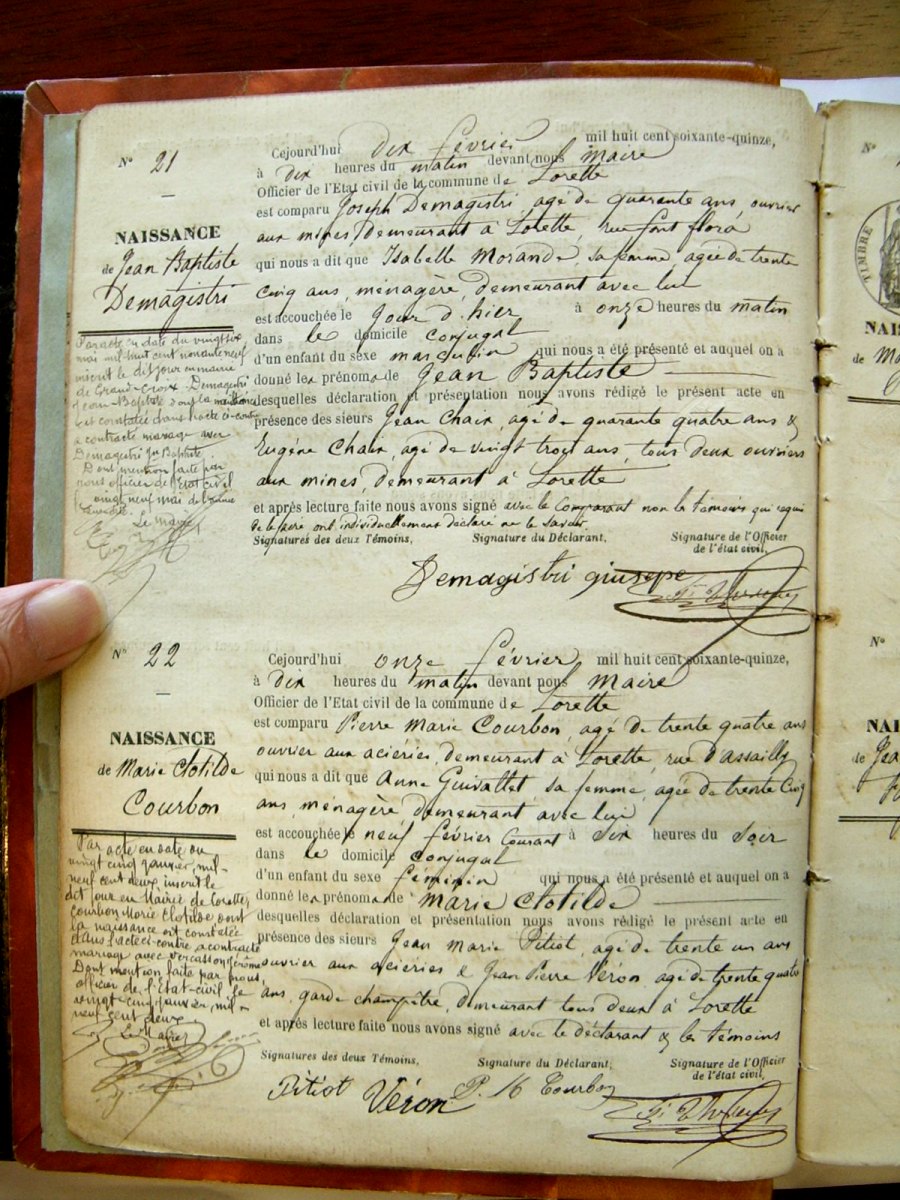 N° 21
NAISSANCE
de Jean Baptiste
Demagistri
Cejourd'hui dix février mil huit cent soixante-quinze,
à dix heures du matin devant nous Maire
Officier de l'Etat civil de la commune de Lorette
est comparu Joseph Demagistri, agé de quarante ans, ouvrier
aux mines, demeurant à Lorette, rue font flora
qui nous a dit que Isabelle Morande, sa femme, agée de trente
cinq ans, ménagère, demeurant avec lui
est accouchée le jour d'hier à onze heures du matin
dans le domicile conjugal
d'un enfant du sexe masculin qui nous a été présenté et auquel on a
donné les prénoms de Jean Baptiste
desquelles déclaration et présentation nous avons rédigé le présent acte en
présence des sieurs Jean Chaix, agé de quarante quatre ans &
Eugène Chaix, agé de vingt trois ans, tous deux ouvriers
aux mines, demeurant à Lorette
et après lecture faite nous avons signé avec le Comparant non les témoins qui requis
de le faire ont individuellement déclaré ne le savoir.
Signatures des deux Témoins, Signature du Déclarant, Signature de l'Officier
de l'état civil,
Demagistri giusepe
Par acte en date du vingt six
mai mil huit cent nonante neuf
inscrit le dit jour en mairie
de Grand-Croix, Demagistri
Jean Baptiste dont la naissance
est constatée dans l'acte ci-contre
a contracté mariage avec
Demagistri
Dont mention faite par
nous officier de l'Etat civil
le vingt neuf mai de l'année
Le maire
N° 22
NAISSANCE
de Marie Clotilde
Courbon
Cejourd'hui onze février mil huit cent soixante-quinze,
à dix heures du matin devant nous Maire
Officier de l'Etat civil de la commune de Lorette
est comparu Pierre Marie Courbon, agé de trente quatre ans
ouvrier aux aciéries, demeurant à Lorette, rue d'assailly
qui nous a dit que Anne Guivallet sa femme, agée de trente cinq
ans, ménagère, demeurant avec lui
est accouchée le neuf février Courant à six heures du soir
dans le domicile conjugal
d'un enfant du sexe féminin qui nous a été présenté et auquel on a
donné les prénoms de Marie Clotilde
desquelles déclaration et présentation nous avons rédigé le présent acte en
présence des sieurs Jean Marie Pitiot, agé de trente un ans
ouvrier aux aciéries & Jean Pierre Véron, agé de trente quatre
ans, garde champêtre, demeurant tous deux à Lorette
et après lecture faite nous avons signé avec le déclarant & les témoins
Signatures des deux Témoins, Signature du Déclarant, Signature de l'Officier
de l'état civil,
Pitiot Véron P. M Courbon
Par acte en date du
vingt cinq janvier, mil
neuf cent deux, inscrit le
dit jour en Mairie de Lorette,
Courbon Marie Clotilde dont
la naissance est constatée
dans l'acte ci-contre, a contracté
mariage avec Vercasson Jérôme
Dont mention faite par nous,
officier de l'Etat-civil le
vingt-cinq janvier, mil
neuf cent deux
Le Maire
N°
TIMBRE
NAIS
de Ma
N°
NAI
de Jea